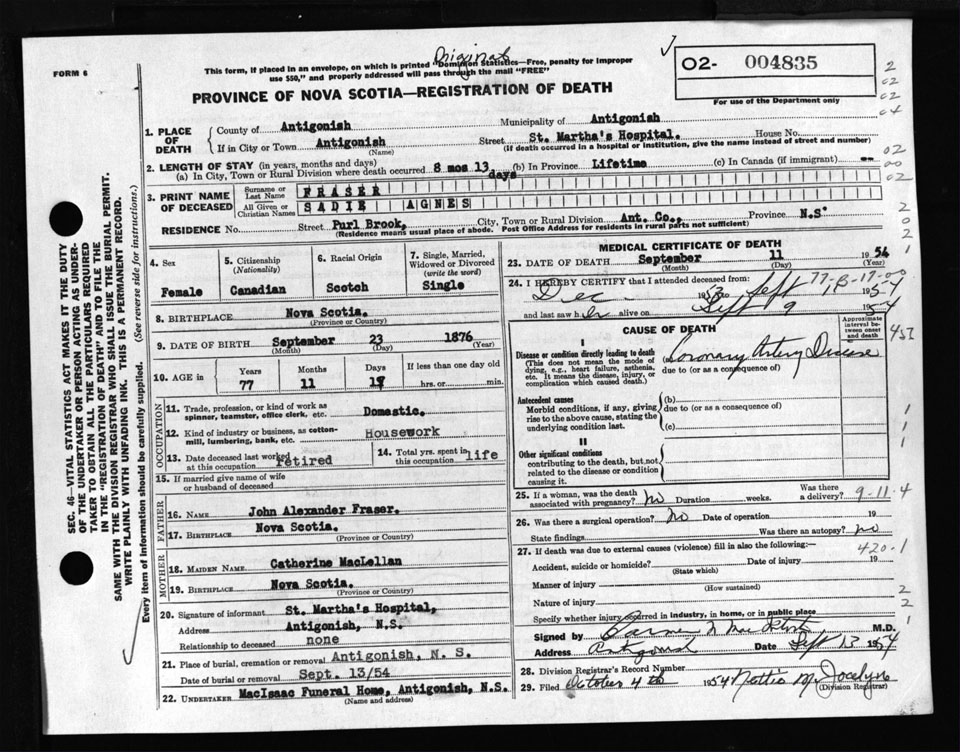 Original
FORM 6
This form, if placed in an envelope, on which is printed "Dominion Statistics—Free, penalty for improper
use $50," and properly addressed will pass through the mail "FREE"
PROVINCE OF NOVA SCOTIA—REGISTRATION OF DEATH
O2- 004835
For use of the Department only
2
02
02
04
02
00
02
2
0
2
1
SEC. 46—VITAL STATISTICS ACT MAKES IT THE DUTY
OF THE UNDERTAKER OR PERSON ACTING AS UNDER-
TAKER TO OBTAIN ALL THE PARTICULARS REQUIRED
IN THE "REGISTRATION OF DEATH" AND TO FILE THE
SAME WITH THE DIVISION REGISTRAR WHO SHALL ISSUE THE BURIAL PERMIT.
WRITE PLAINLY WITH UNFADING INK. THIS IS A PERMANENT RECORD.
Every item of information should be carefully supplied. (See reverse side for instructions.)
1. PLACE OF DEATH
County of Antigonish Municipality of Antigonish
If in City or Town Antigonish Street St. Martha's Hospital. House No.
(Name) (If death occurred in a hospital or institution, give the name instead of street and number)
2. LENGTH OF STAY (in years, months and days)
(a) In City, Town or Rural Division where death occurred 8 mos 13 days (b) In Province Lifetime (c) In Canada (if immigrant) --
3. PRINT NAME OF DECEASED
Surname or Last Name FRASER
All Given or Christian Names SADIE AGNES
RESIDENCE No. Street Purl Brook, City, Town or Rural Division Ant. Co., Province N.S.
(Residence means usual place of abode. Post Office Address for residents in rural parts not sufficient)
4. Sex
Female
5. Citizenship
(Nationality)
Canadian
6. Racial Origin
Scotch
7. Single, Married,
Widowed or Divorced
(write the word)
Single
8. BIRTHPLACE Nova Scotia.
(Province or Country)
9. DATE OF BIRTH September 23 1876
(Month) (Day) (Year)
10. AGE in Years Months Days If less than one day old
77 11 19 hrs. or min.
OCCUPATION
11. Trade, profession, or kind of work as
spinner, teamster, office clerk, etc. Domestic.
12. Kind of industry or business, as cotton-
mill, lumbering, bank, etc. Housework
13. Date deceased last worked
at this occupation retired
14. Total yrs. spent in
this occupation life
15. If married give name of wife
or husband of deceased
FATHER
16. NAME John Alexander Fraser.
17. BIRTHPLACE Nova Scotia.
(Province or Country)
MOTHER
18. MAIDEN NAME Catherine MacLellan
19. BIRTHPLACE Nova Scotia.
(Province or Country)
20. Signature of informant St. Martha's Hospital,
Address Antigonish, N.S.
Relationship to deceased none
21. Place of burial, cremation or removal Antigonish, N. S.
Date of burial or removal Sept. 13/54
22. UNDERTAKER MacIsaac Funeral Home, Antigonish, N.S.
(Name and address)
MEDICAL CERTIFICATE OF DEATH
23. DATE OF DEATH September 11 1954
(Month) (Day) (Year)
24. I HEREBY CERTIFY that I attended deceased from:
Dec 1953 to Sept 1954
and last saw her alive on Sept 9 1954
CAUSE OF DEATH
Approximate
interval be-
tween onset
and death
I
Disease or condition directly leading to death
(This does not mean the mode of
dying, e.g., heart failure, asthenia,
etc. It means the disease, injury, or
complication which caused death.)
Coronary Artery Disease
due to (or as a consequence of)
Antecedent causes
Morbid conditions, if any, giving
rise to the above cause, stating the
underlying condition last.
(b)
due to (or as a consequence of)
(c)
II
Other significant conditions
contributing to the death, but not
related to the disease or condition
causing it.
1
1
1
25. If a woman, was the death
associated with pregnancy? no Duration weeks. Was there
a delivery? 9-11-4
26. Was there a surgical operation? No Date of operation 19
State findings Was there an autopsy? no
27. If death was due to external causes (violence) fill in also the following:— 420.1
Accident, suicide or homicide? Date of injury 19
(State which)
Manner of injury
(How sustained)
Nature of injury
Specify whether injury occurred in industry, in home, or in public place
2
2
1
Signed by M.D.
Address Antigonish Date Sept 13 1954
28. Division Registrar's Record Number
29. Filed October 4th 1954 Nettie M. Jocelyn
(Division Registrar)